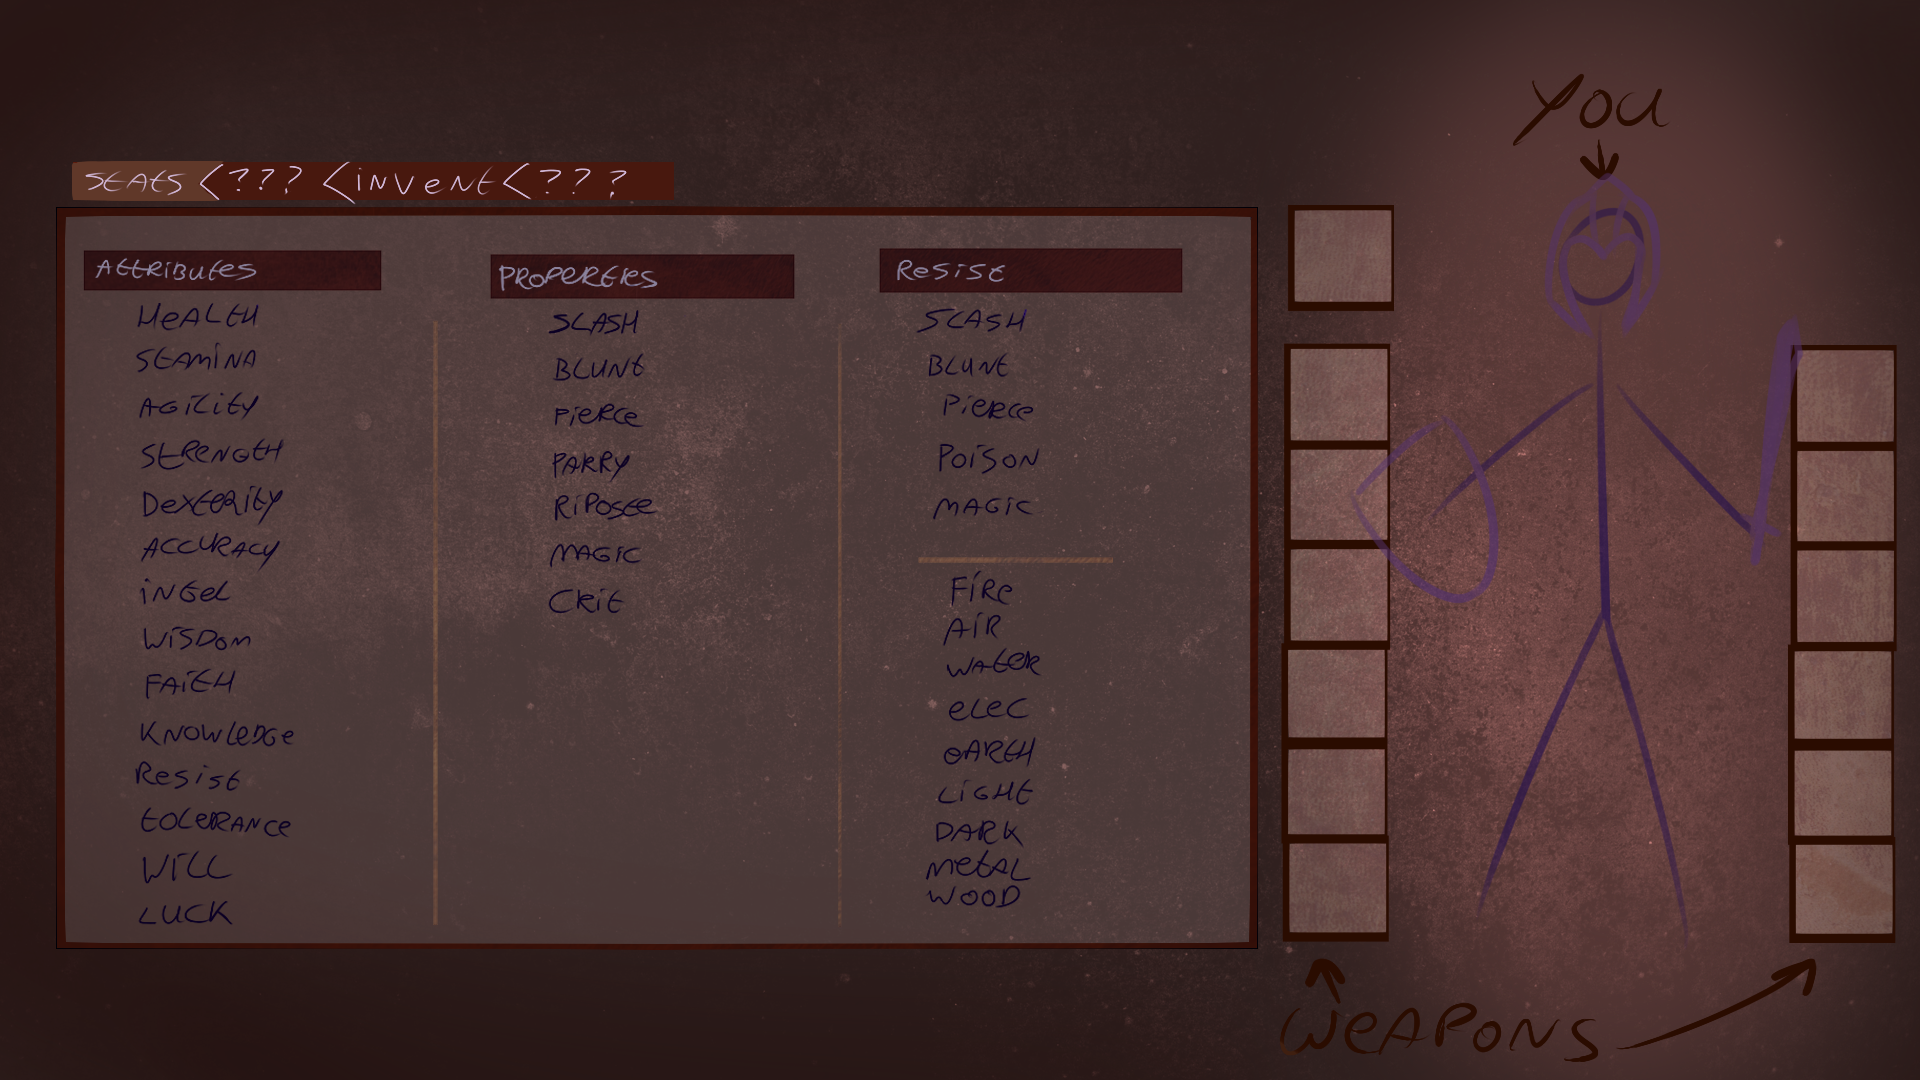 YOU
STATS <??? <INVENT<???
ATTRIBUTES
HEALTH
STAMINA
AGILITY
STRENGTH
DEXTERITY
ACCURACY
INTEL
WISDOM
FAITH
KNOWLEDGE
RESIST
TOLERANCE
WILL
LUCK
PROPERTIES
SLASH
BLUNT
PIERCE
PARRY
RIPOSTE
MAGIC
CRIT
RESIST
SLASH
BLUNT
PIERCE
POISON
MAGIC
FIRE
AIR
WATER
ELEC
EARTH
LIGHT
DARK
METAL
WOOD
WEAPONS